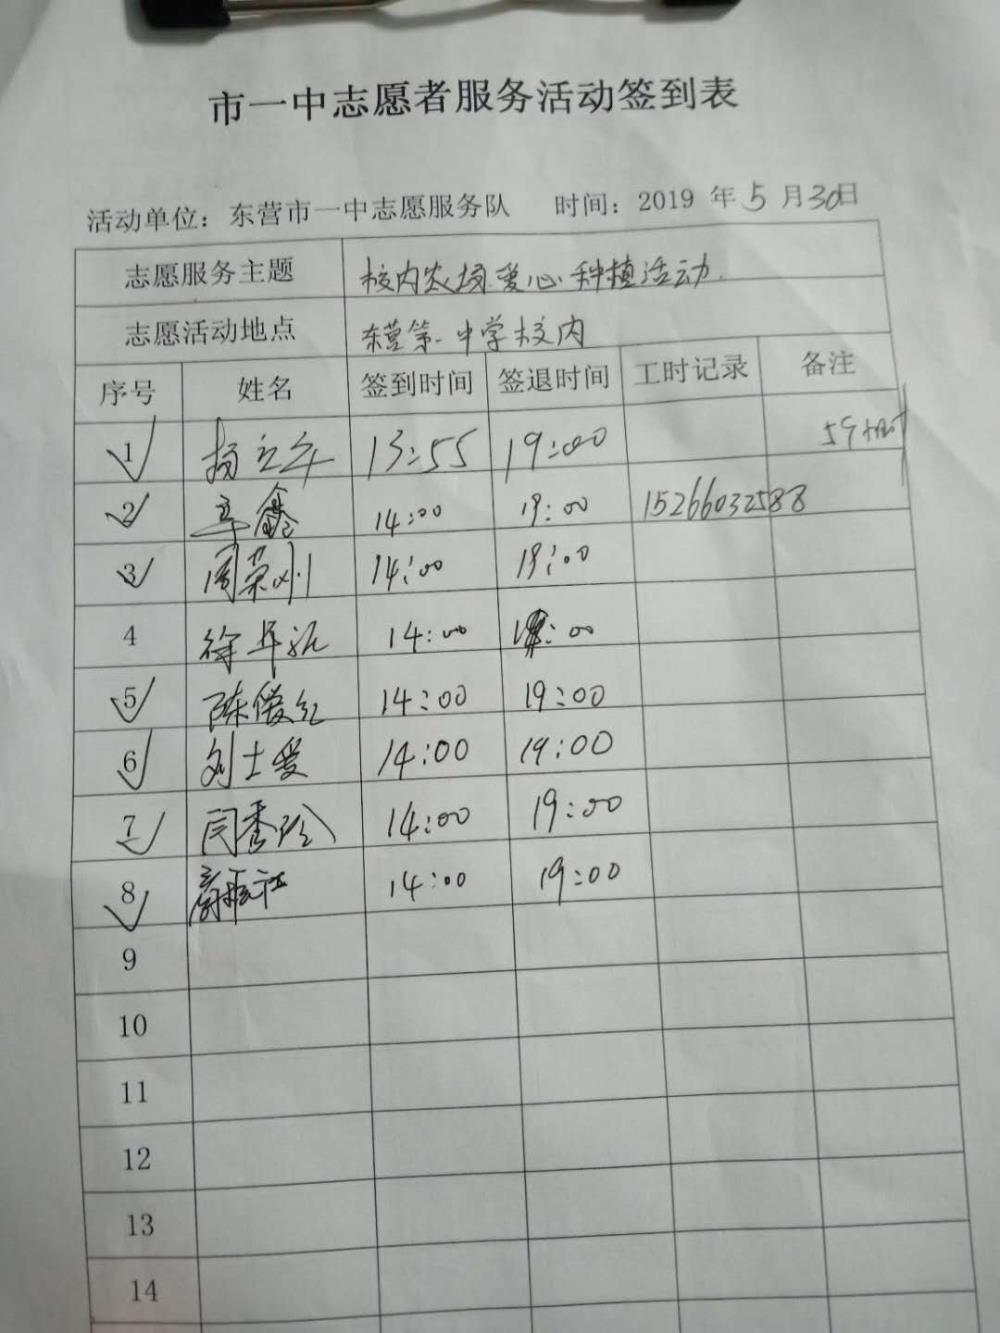 市一中志愿者服务活动签到表
活动单位：东营市一中志愿服务队 时间：2019 年 5 月 30日
志愿服务主题 校内农场爱心种植活动.
志愿活动地点 东营第一中学校内
序号 姓名 签到时间 签退时间 工时记录 备注
1 13:55 19:00
2 辛鑫 14:00 19:00 15266032588
3 周荣刚 14:00 19:00
4 徐 14:00 :00
5 陈俊红 14:00 19:00
6 刘士爱 14:00 19:00
7 闫秀玲 14:00 19:00
8 14:00 19:00
9
10
11
12
13
14